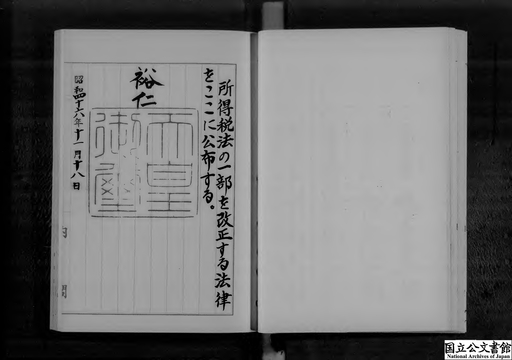 所得税法の一部を改正する法律
をここに公布する。
裕仁
天皇
御璽
昭和四十六年十一月十八日
内
閣
国立公文書館
National Archives of Japan